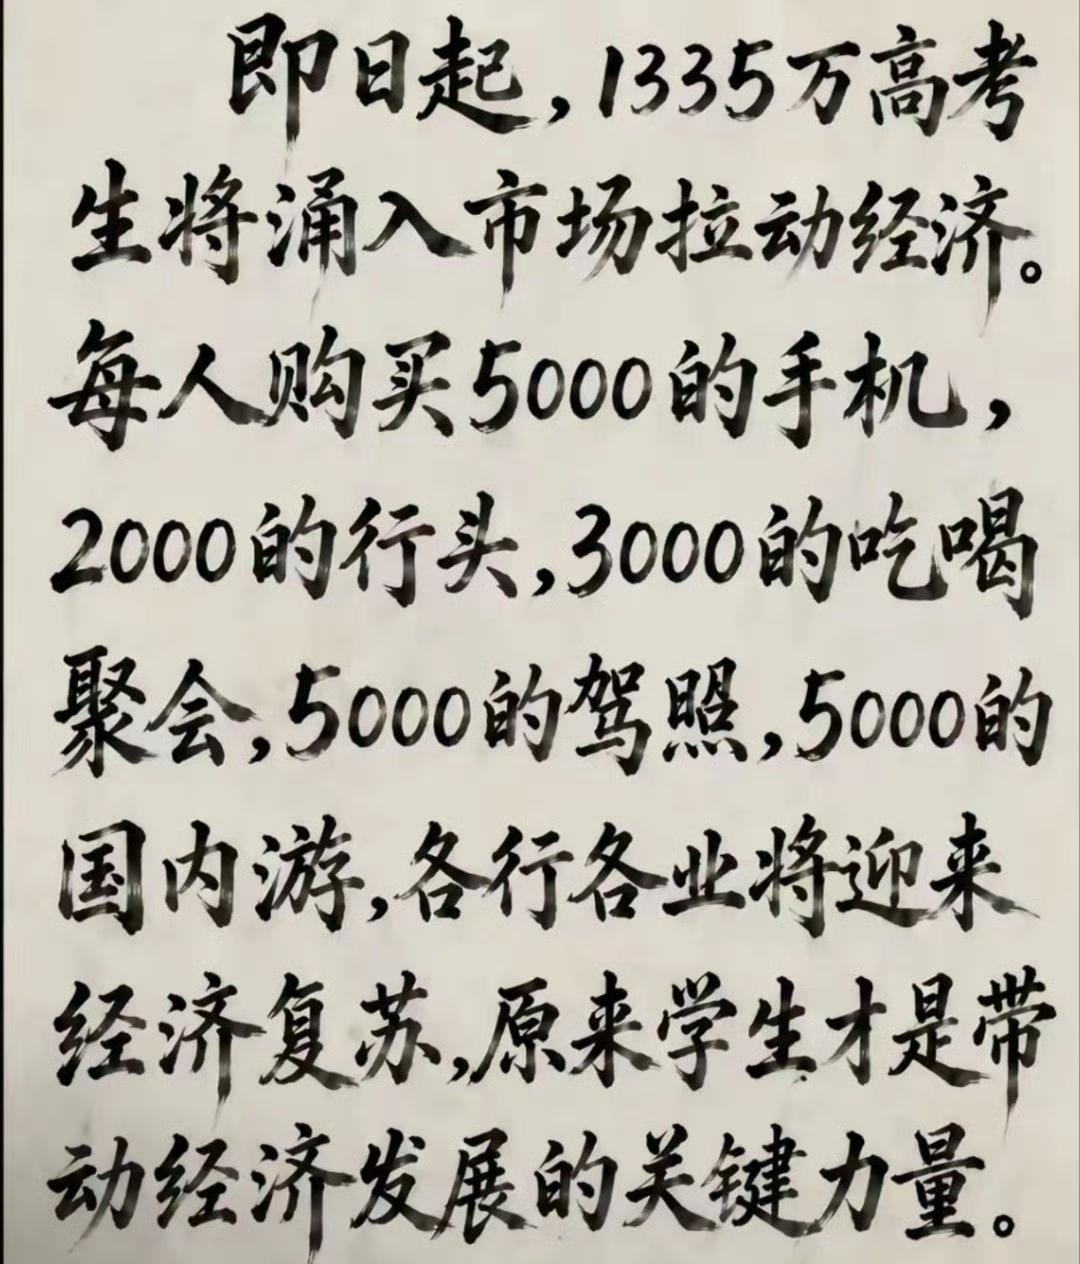 即日起，1335万高考
生将涌入市场拉动经济。
每人购买5000的手机，
2000的行头，3000的吃喝
聚会，5000的驾照，5000的
国内游，各行各业将迎来
经济复苏，原来学生才是带
动经济发展的关键力量。